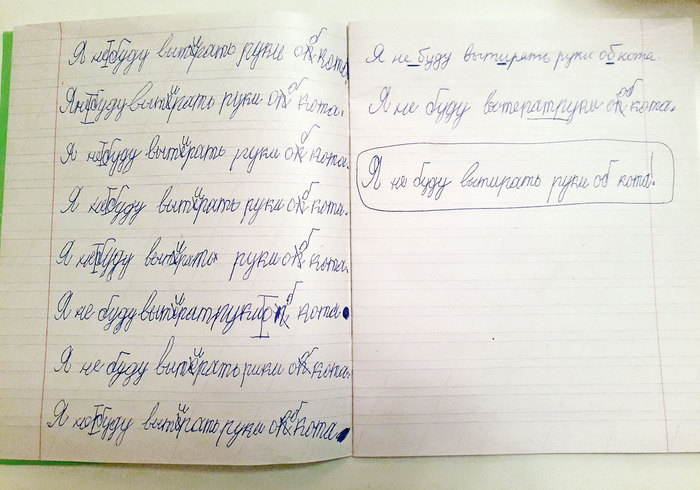 Я не буду вытирать руки об кота.
Я не буду вытирать руки об кота.
Я не буду вытирать руки об кота.
Я не буду вытирать руки об кота.
Я не буду вытирать руки об кота.
Я не буду вытират руки об кота.
Я не буду вытирать рики об кота.
Я не буду вытирать руки об кота.
Я не буду вытирать руки об кота.
Я не буду вытерат руки об кота.
Я не буду вытирать руки об кота!